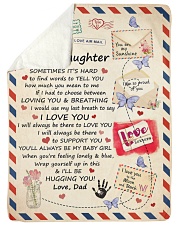 LOVE AIR MAIL
ughter
You are my
Sunshine
SOMETIMES IT'S HARD
to find words to TELL YOU
how much you mean to me
If I had to choose between
LOVING YOU & BREATHING
I would use my last breath to say
I LOVE YOU
I will always be there to LOVE YOU
I will always be there
to SUPPORT YOU
YOU'LL ALWAYS BE MY BABY GIRL
When you're feeling lonely & blue,
Wrap yourself up in this
& I'LL BE
HUGGING YOU!
Love, Dad
so proud
of you
LOVE
Forever
I love you